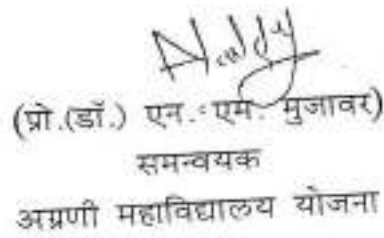 (प्रो.(डॉ.) एन. एम. मुजावर)
समन्वयक
अग्रणी महाविद्यालय योजना